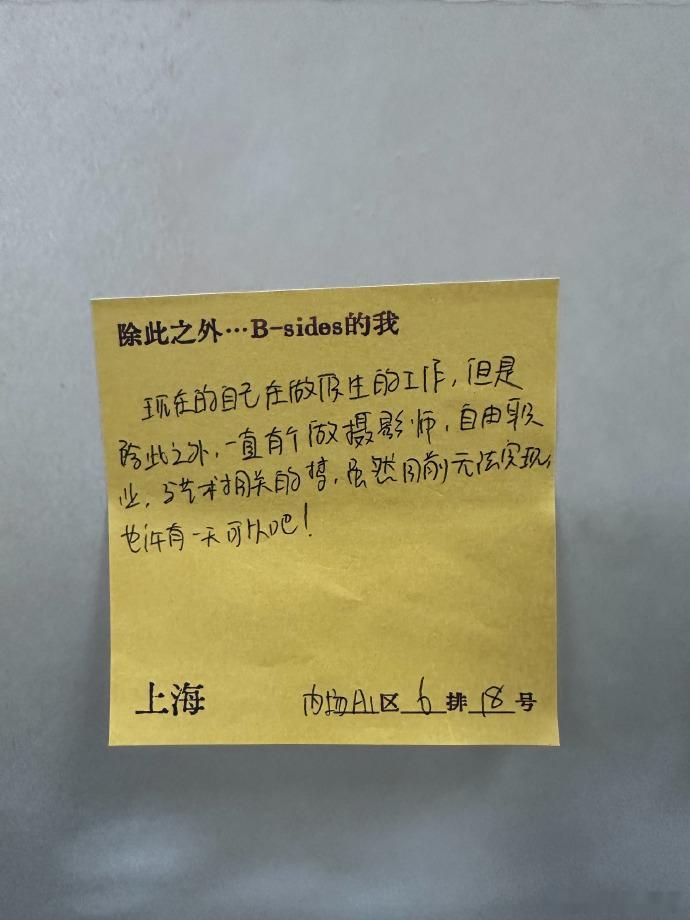 除此之外…B-sides的我
现在的自己在做保生的工作，但是
除此之外，一直有个做摄影师，自由职
业，与艺术相关的梦，虽然目前无法实现，
也许有一天可以吧！
上海 内场A1区6排18号